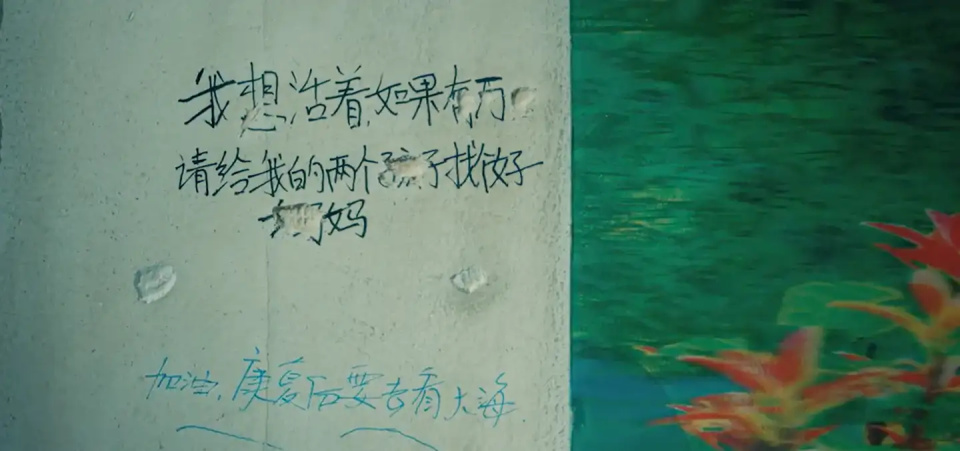 我想活着,如果有万
请给我的两个孩子找个好
妈妈
加油,康复后要去看大海